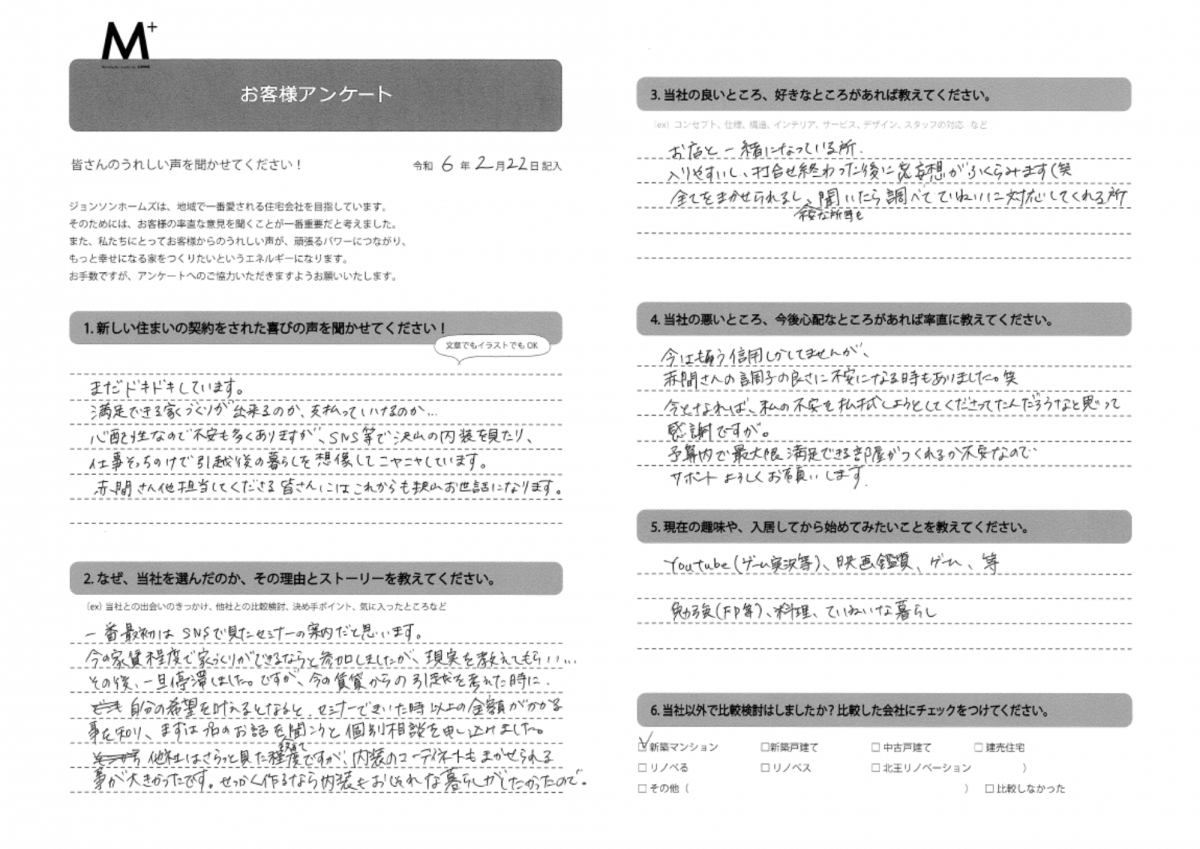 M+
お客様アンケート
皆さんのうれしい声を聞かせてください！
令和 6 年 2 月 22 日 記入
ジョンソンホームズは、地域で一番愛される住宅会社を目指しています。
そのためには、お客様の率直な意見を聞くことが一番重要だと考えました。
また、私たちにとってお客様からのうれしい声が、頑張るパワーにつながり、
もっと幸せになる家をつくりたいというエネルギーになります。
お手数ですが、アンケートへのご協力いただきますようお願いいたします。
1. 新しい住まいの契約をされた喜びの声を聞かせてください！
文章でもイラストでも OK
まだドキドキしています。
満足できる家づくりが出来るのか、支払っていけるのか…
心配性なので不安も多くありますが、SNS等で沢山の内装を見たり、
仕事そっちのけで引越後の暮らしを想像してニヤニヤしています。
赤間さん他担当してくださる皆さんにはこれからも沢山お世話になります。
2. なぜ、当社を選んだのか、その理由とストーリーを教えてください。
（ex）当社との出会いのきっかけ、他社との比較検討、決め手ポイント、気に入ったところなど
一番最初はSNSで見たセミナーの案内だと思います。
今の家賃程度で家づくりができるならと参加しましたが、現実を教えてもらい…
その後、一旦停滞しました。ですが、今の賃貸からの引越を考えた時に、
自分の希望を叶えるとなると、セミナーできいた時以上の金額がかかる
事を知り、まずは一度お話を聞こうと個別相談を申し込みました。
他社はさらっと見た程度ですが、内装のコーディネートもまかせられる
事が大きかったです。せっかく作るなら内装もおしゃれな暮らしがしたかったので。
3. 当社の良いところ、好きなところがあれば教えてください。
（ex）コンセプト、仕様、構造、インテリア、サービス、デザイン、スタッフの対応 など
お店と一緒になっている所。
入りやすいし、打合せ終わった後に妄想がふくらみます(笑
全てをまかせられるし、聞いたら調べてていねいに対応してくれる所
不安な所も
4. 当社の悪いところ、今後心配なところがあれば率直に教えてください。
今はもう信用しかしてませんが、
赤間さんの調子の良さに不安になる時もありました。笑
今となれば、私の不安を払拭しようとしてくださってたんだろうなと思って
感謝ですが。
予算内で最大限満足できる部屋がつくれるか不安なので
サポートよろしくお願いします。
5. 現在の趣味や、入居してから始めてみたいことを教えてください。
Youtube(ゲーム実況等)、映画鑑賞、ゲーム、等
勉強(FP等)、料理、ていねいな暮らし
6. 当社以外で比較検討はしましたか？比較した会社にチェックをつけてください。
☑新築マンション □新築戸建て □中古戸建て □建売住宅
□リノベる □リノベス □北王リノベーション ）
□その他（ ） □比較しなかった